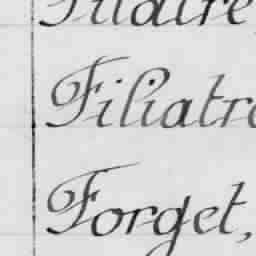 Filiatre
Forget,